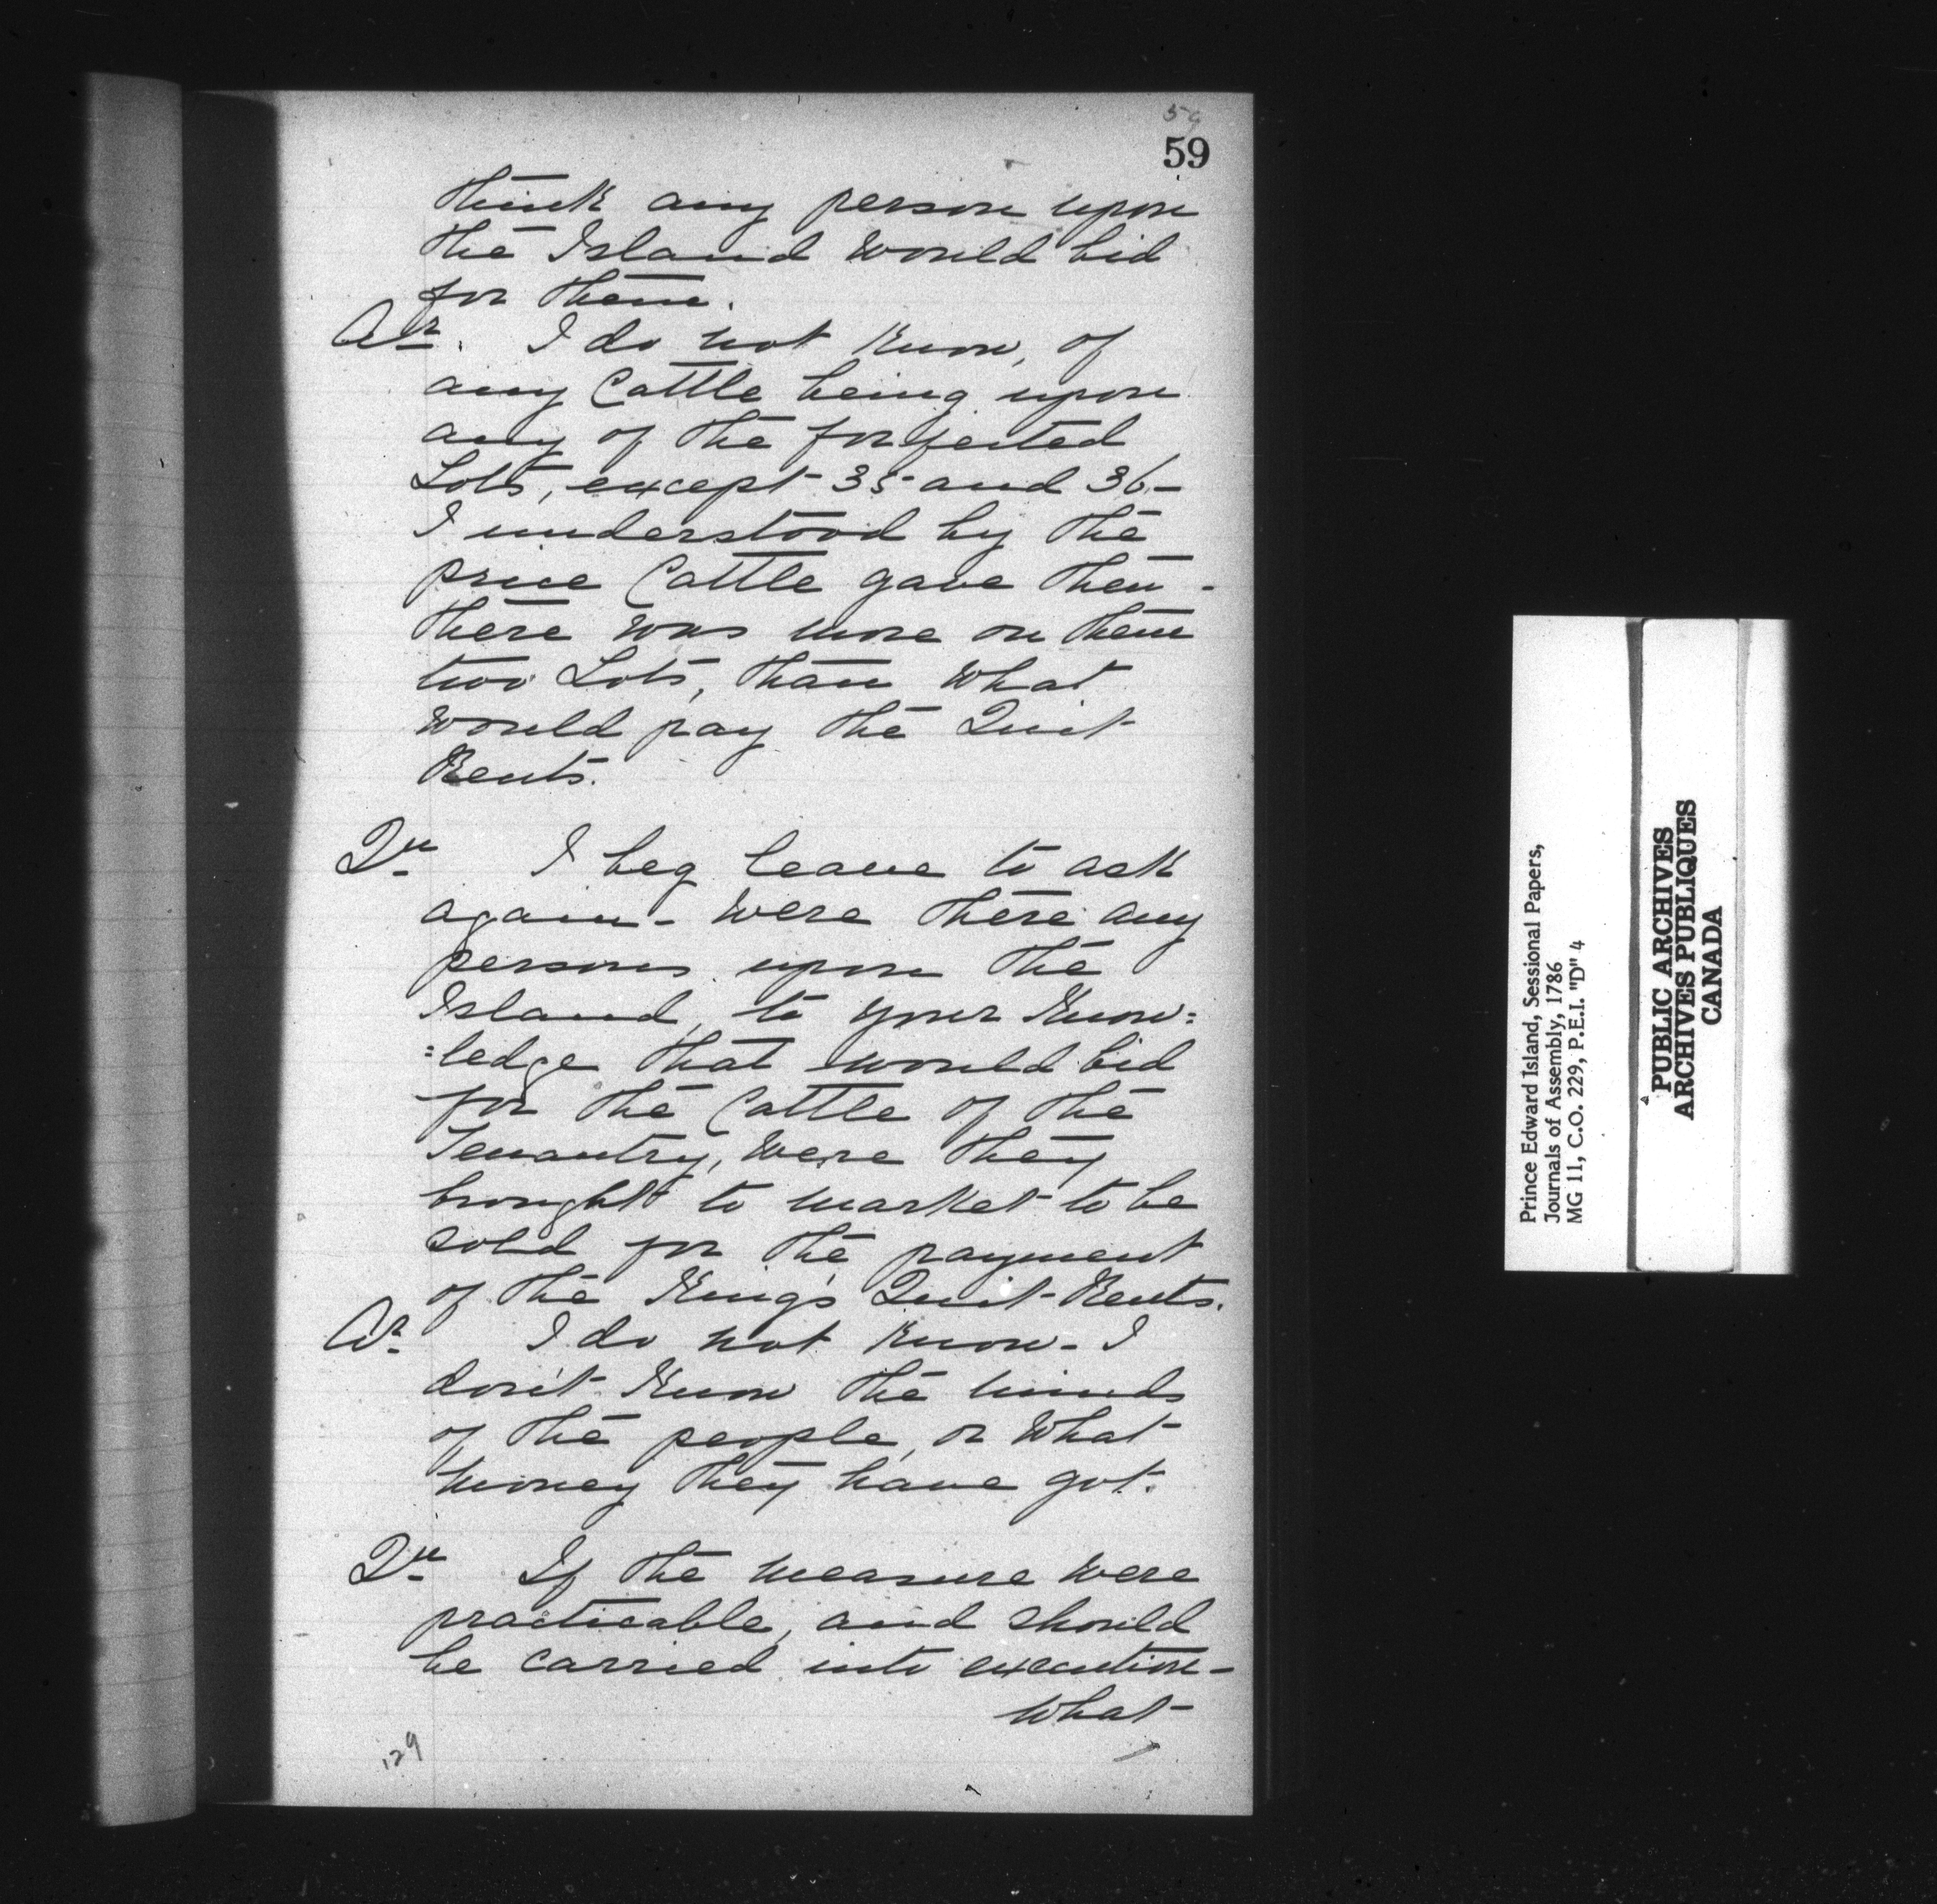 59
59
think any person upon
the Island would bid
for them.
Ar. I do not know, of
any Cattle being upon
any of the forfeited
Lots, except 35 and 36-
I understood by the
price Cattle gave then -
there was more on them
two Lots, than what
would pay the Quit
Rents.
Qu. I beg leave to ask
again - were there any
persons upon the
Island, to your Know=
=ledge that would bid
for the Cattle of the
Tenantry, were they
brought to market to be
sold for the payment
of the King's Quit-Rents.
Ar. I do not know - I
don't Know the minds
of the people, or what
money they have got.
Qu. If the measure were
practicable, and should
be carried into execution -
what
129
Prince Edward Island, Sessional Papers,
Journals of Assembly, 1786
MG 11, C.O. 229, P.E.I. "D" 4
PUBLIC ARCHIVES
ARCHIVES PUBLIQUES
CANADA